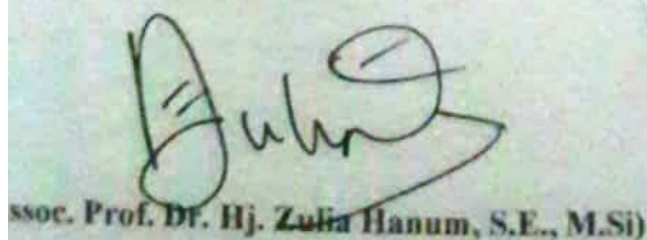 ssoc. Prof. Dr. Hj. Zulia Hanum, S.E., M.Si)